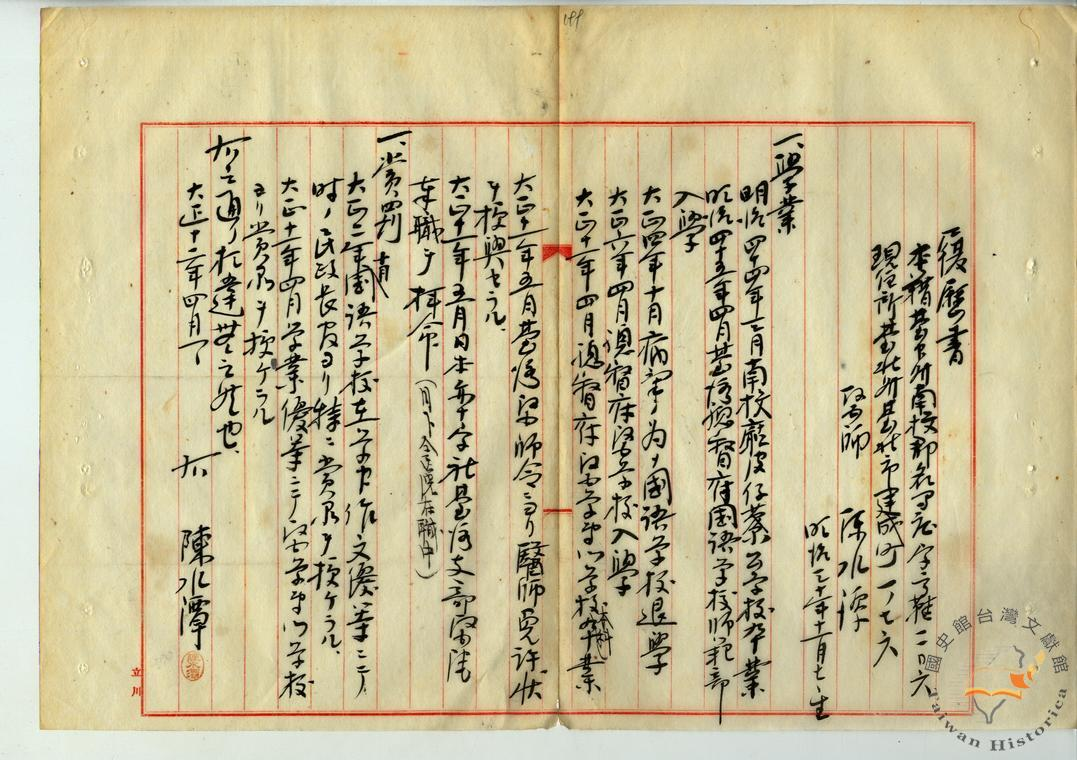 履歷書
本籍臺中州南投郡名間庄字新 二百六
現住所臺北州臺北市建成町一ノ七六
醫師 陳水潭
明治三十年十一月七日生
一、學業
明治四十四年三月南投廳皮仔寮公學校卒業
明治四十五年四月臺灣總督府国語学校師範部
入學
大正四年十月病氣ノ為メ國語学校退學
大正六年四月總督府医学校入學
大正十一年四月總督府医学専門学校本科卒業
大正十一年五月臺灣医師令ニヨリ醫師免許状
ヲ授與セラル、
大正十一年五月日本赤十字社臺灣支部醫院
奉職ヲ拝命（目下仝医院在職中）
一、賞罰
大正二年 月国語学校在学中作文優等ニテ
時ノ民政長官ヨリ特ニ賞品ヲ授ケラル、
大正十一年四月学業優等ニテ医学専門学校
ヨリ賞品ヲ授ケラル
右之通リ相違無之候也、
大正十二年四月 日
右 陳水潭
立川
國史館台灣文獻館
Taiwan Historica